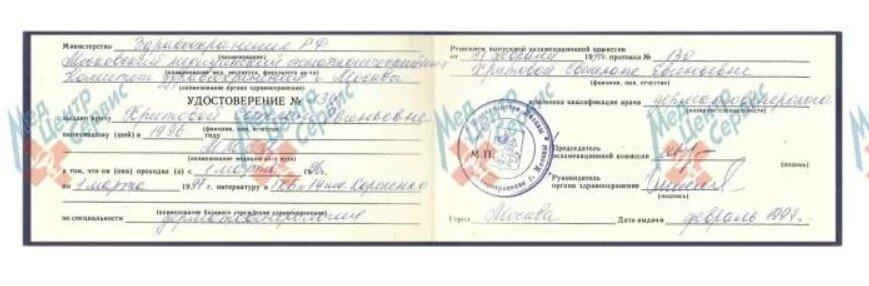 Министерство Здравоохранения РФ
(наименование)
Московский медицинский стоматологический
(наименование мед. института, факультета ун-та)
Комитет здравоохранения г. Москвы
(наименование органа здравоохранения)
УДОСТОВЕРЕНИЕ №
выдано врачу Хритовой Светлане Евгеньевне
(фамилия, имя, отчество)
окончившему (шей) в 1996 году
(наименование медицинского вуза)
в том, что он (она) проходил (а) с 1 марта 1996г.
по 1 марта 1997г. интернатуру в ГКБ № 14 им. Короленко
(наименование базового учреждения здравоохранения)
по специальности дерматовенерология
Решением выпускной экзаменационной комиссии
от февраля протокол № 130
Хритовой Светлане Евгеньевне
(фамилия, имя, отчество)
присвоена квалификация врача дерматовенеролога
(название специальности)
М.П.
Председатель
экзаменационной комиссии
(подпись)
Руководитель
органа здравоохранения
(подпись)
Город Москва Дата выдачи февраль 1997г.
Мед
Центр
Сервис